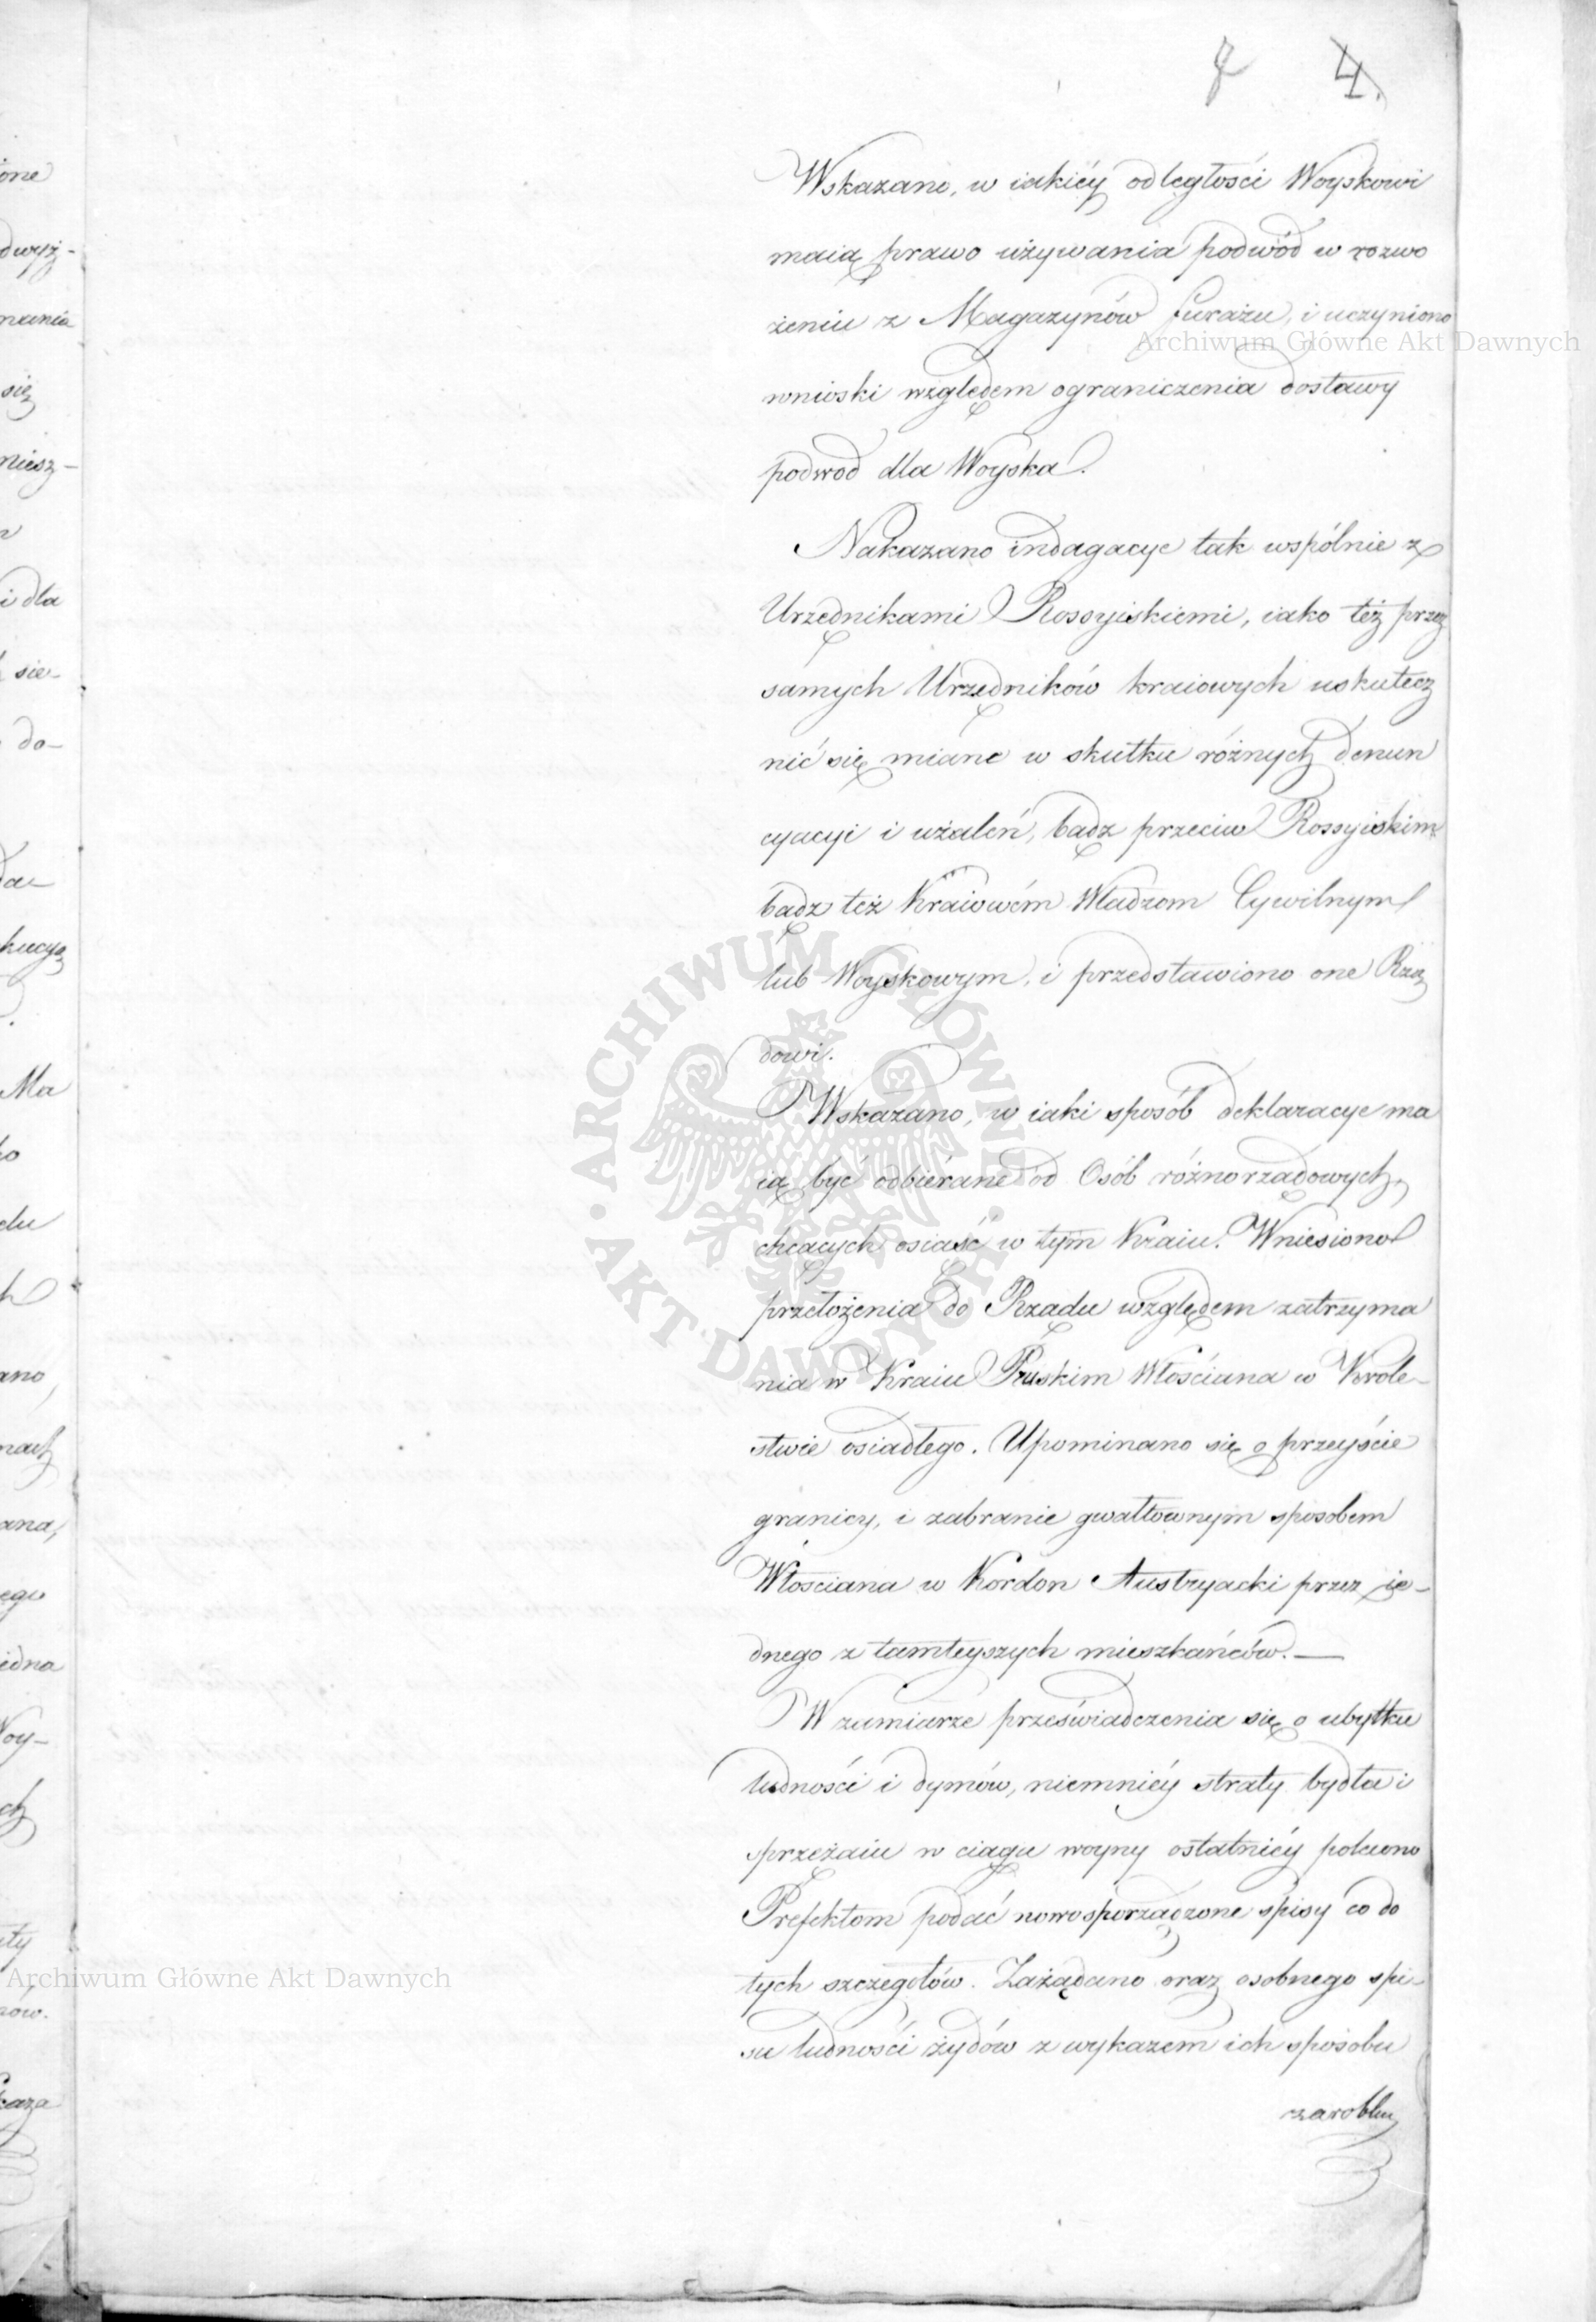 8 4.
Wskazano, w iakiéy odległości Woyskowi
maią prawo używania podwód w rozwo
żeniu z Magazynów furażu, i uczyniono
wnioski względem ograniczenia dostawy
podwod dla Woyska.
Nakazano indagacye tak wspólnie z
Urzędnikami Rossyiskiemi, iako też przez
samych Urzędników kraiowych uskutecz
nić się miane w skutku różnych denun
cyacyi i użaleń, bądz przeciw Rossyiskim
bądz też Kraiowém Władzom Cywilnym
lub Woyskowym, i przedstawiono one Rzą
dowi.
Wskazano, w iaki sposób deklaracye ma
ią być odbiérane od Osób różnorządowych,
chcących osiaść w tym Kraiu. Wniesiono
przełożenia do Rządu względem zatrzyma
nia w Kraiu Pruskim Włościana w Krole-
stwie osiadłego. Upominano się o przeyście
granicy, i zabranie gwałtownym sposobem
Włościana w Kordon Austryacki przez ie-
dnego z tamteyszych mieszkańców.—
W zamiarze przeświadczenia się o ubytku
ludności i dymów, niemniéy straty bydła i
sprzężaiu w ciągu woyny ostatniéy polecono
Prefektom podać nowosporządzone spisy co do
tych szczegołów. Zażądano oraz osobnego spi-
su ludności żydów z wykazem ich sposobu
zarobku
ARCHIWUM GŁÓWNE AKT DAWNYCH
Archiwum Główne Akt Dawnych
Archiwum Główne Akt Dawnych